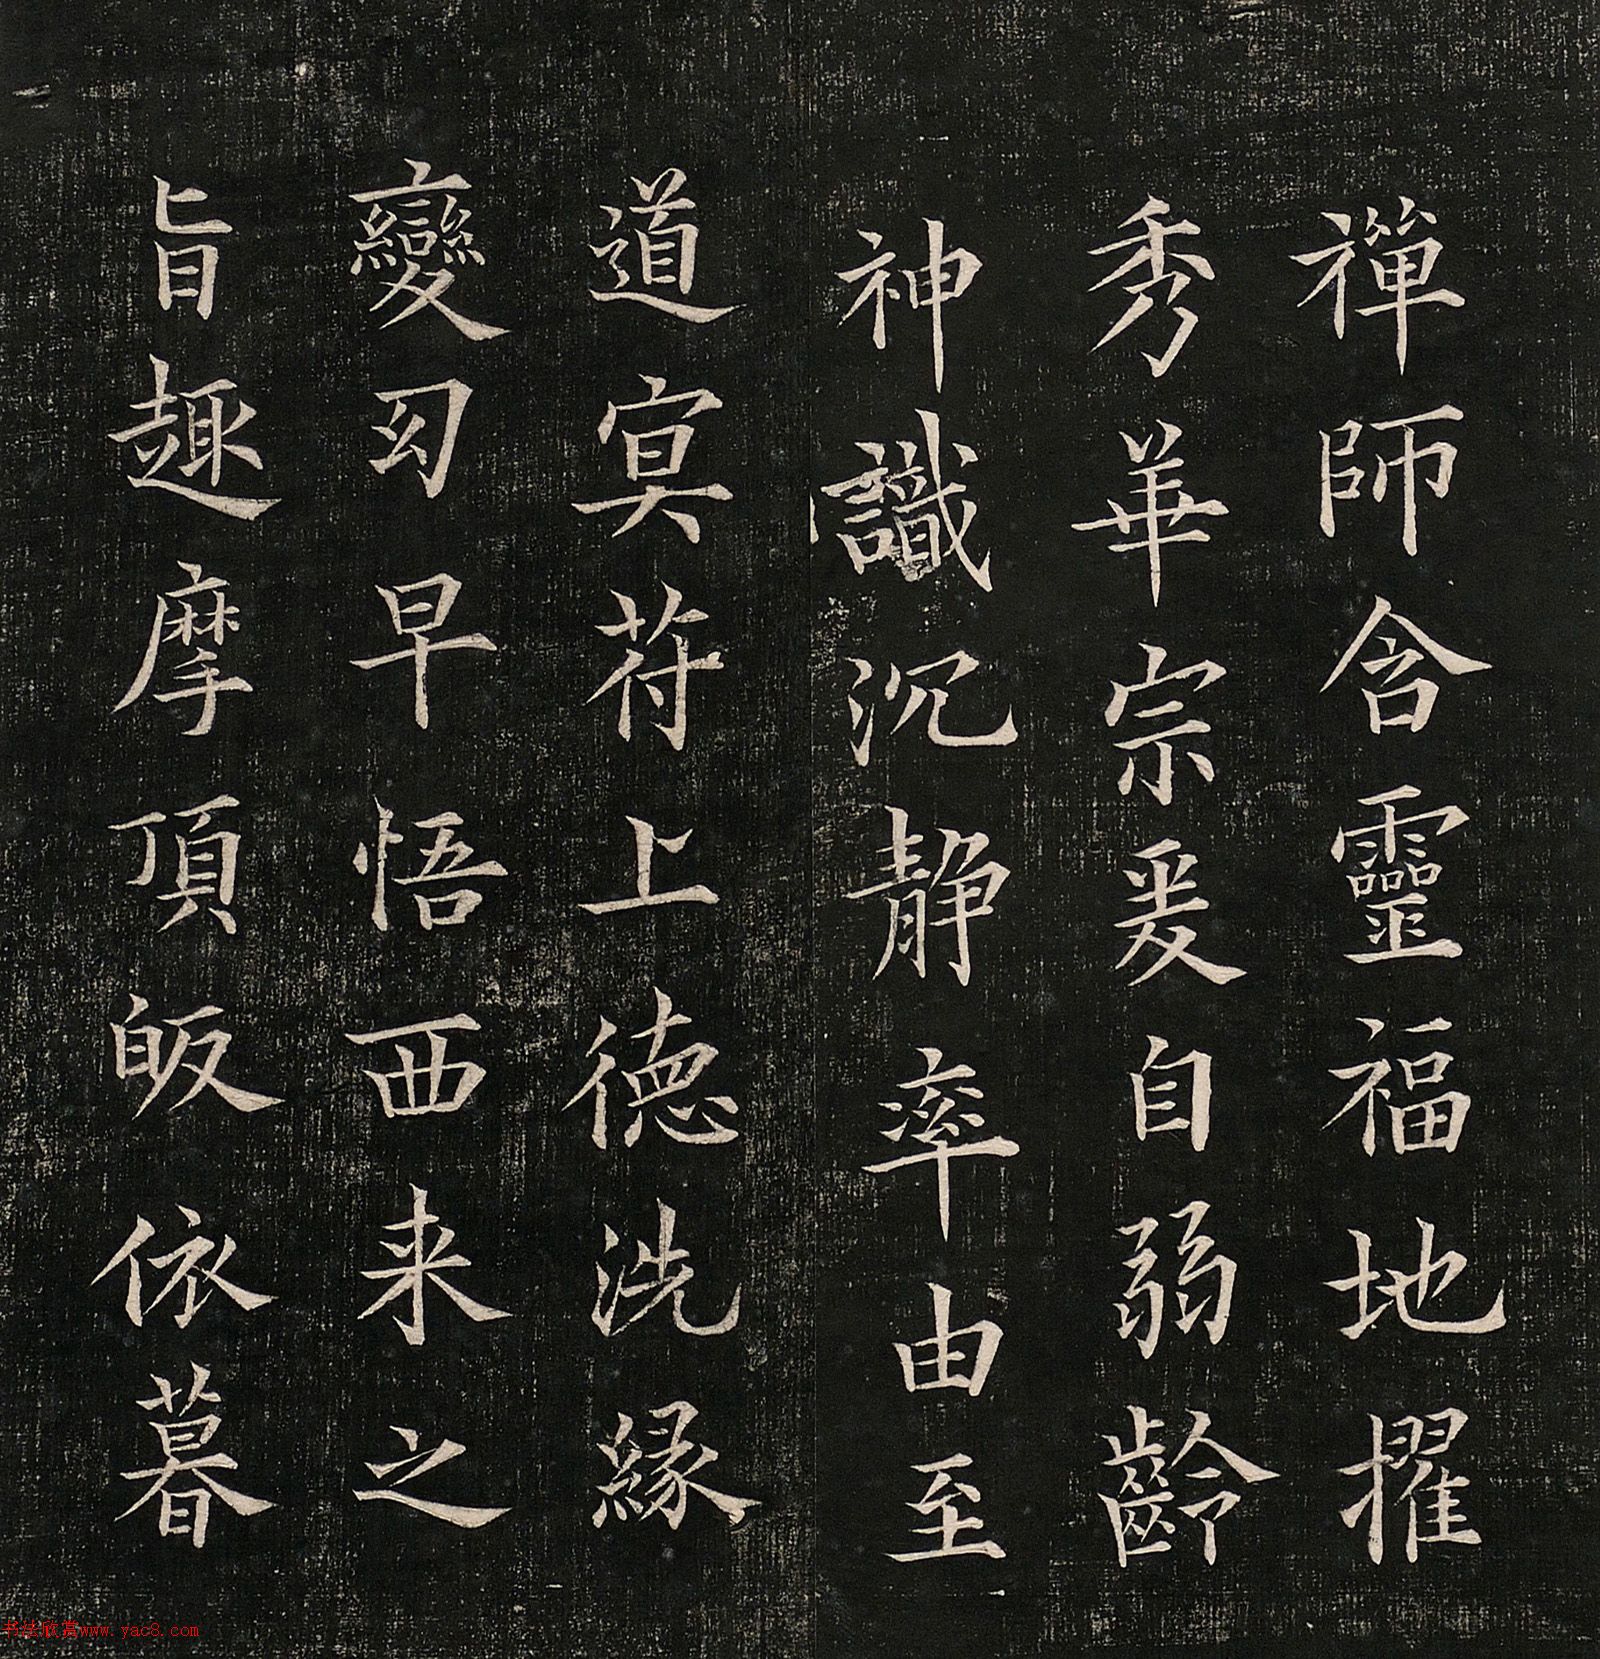 禪師含靈福地擢
秀華宗爰自弱齡
神識沉静率由至
道冥苻上德洗緣
變幻早悟西来之
旨趣摩頂皈依暮
书法欣赏www.yac8.com